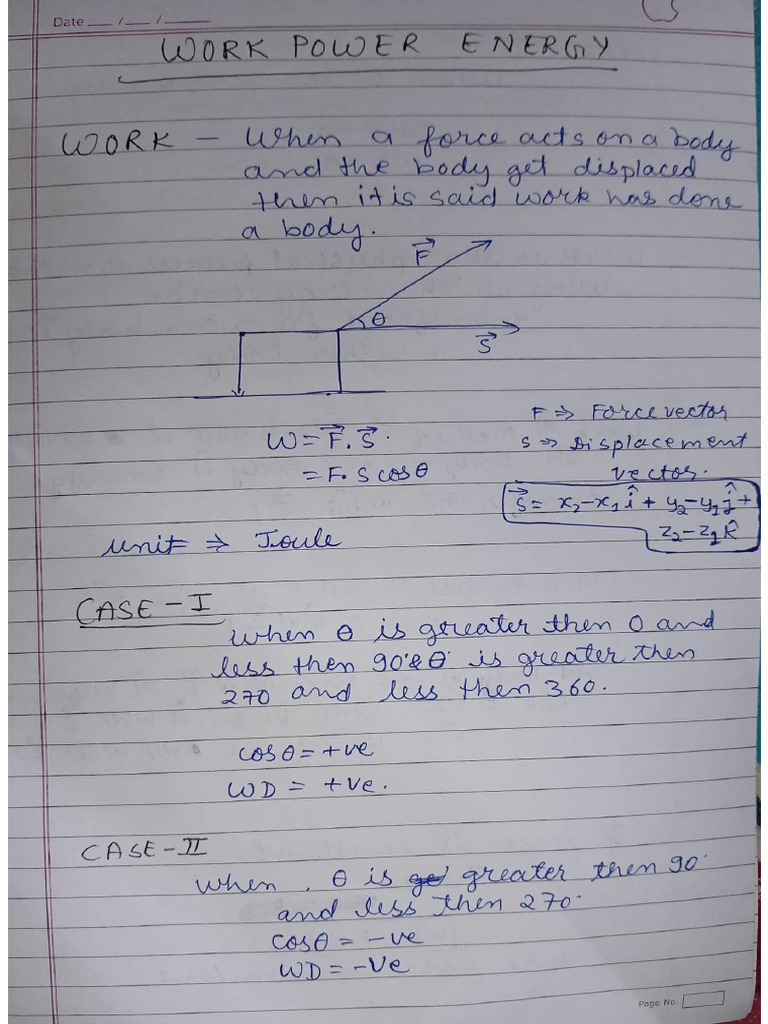 Date __ / __ / __
WORK POWER ENERGY
WORK – When a force acts on a body
and the body get displaced
then it is said work has done
a body.
F⃗
θ
S⃗
W = F⃗ . S⃗ .
= F. S cosθ
F ⇒ Force vector
S ⇒ Displacement
vector.
S⃗ = x₂-x₁ î + y₂-y₁ ĵ +
z₂-z₁ k̂
unit ⇒ Joule
CASE - I
when θ is greater then 0 and
less then 90° & θ° is greater then
270 and less then 360.
cosθ = +ve
WD = +ve.
CASE - II
when , θ is greater then 90°
and less then 270°
cosθ = -ve
WD = -Ve
Page No.